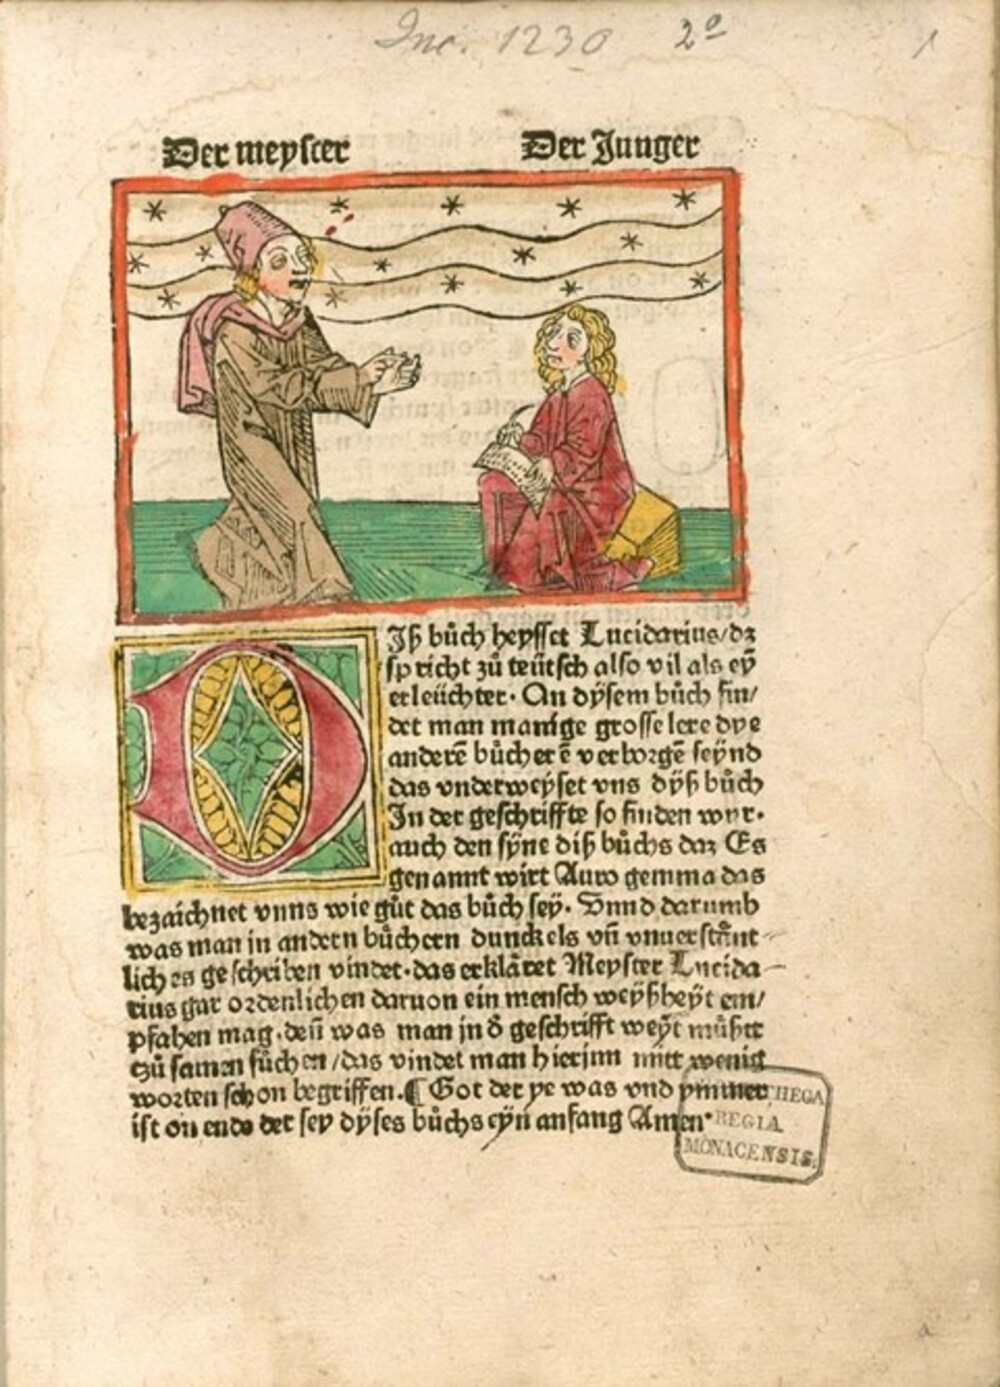 Inc. 1230 2º 1
Der meyster Der Junger
DIß bůch heysset Lucidarius/dz
spricht zů teütsch also vil als eÿ
erleüchter. An dÿsem bůch fin/
det man manige grosse lere dye
anderē bůcherē verborgē seÿnd
das vnderweÿset vns dÿß bůch
In der geschriffte so finden wyr.
auch den sÿne diß bůchs daz Es
genannt wirt Auro gemma das
bezaichnet vnns wie gůt das bůch seÿ. Vnnd darumb
was man in andern bůchern dunckels vñ vnuerstånt
lichs geschriben vindet.das erkläret Meyster Lucida
rius gar ordenlichen daruon ein mensch weÿßheÿt em/
pfahen mag.deñ was man in ð geschrifft weÿt můßte
zů samen sůchen/das vindet man hierjnn mitt wenig
worten schon begriffen.¶ Got der ye was vnd ymmer
ist on ende der sey dÿses bůchs eÿn anfang Amen
REGIA
MONACENSIS.
a